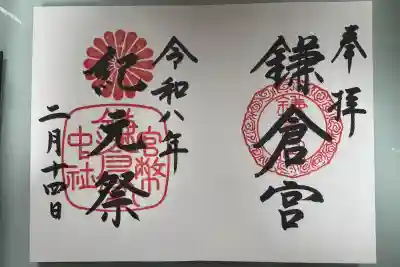 奉拝
鎌倉宮
令和八年
紀元祭
二月十四日
官幣
中社